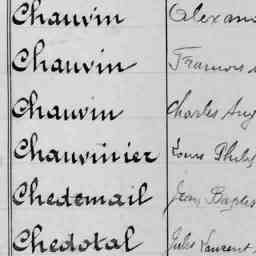 Chauvin Alexan
Chauvin François
Chauvin Charles Aug
Chauvinier Louis Philip
Chedemail Jean Baptis
Chedotal Jules Laurent